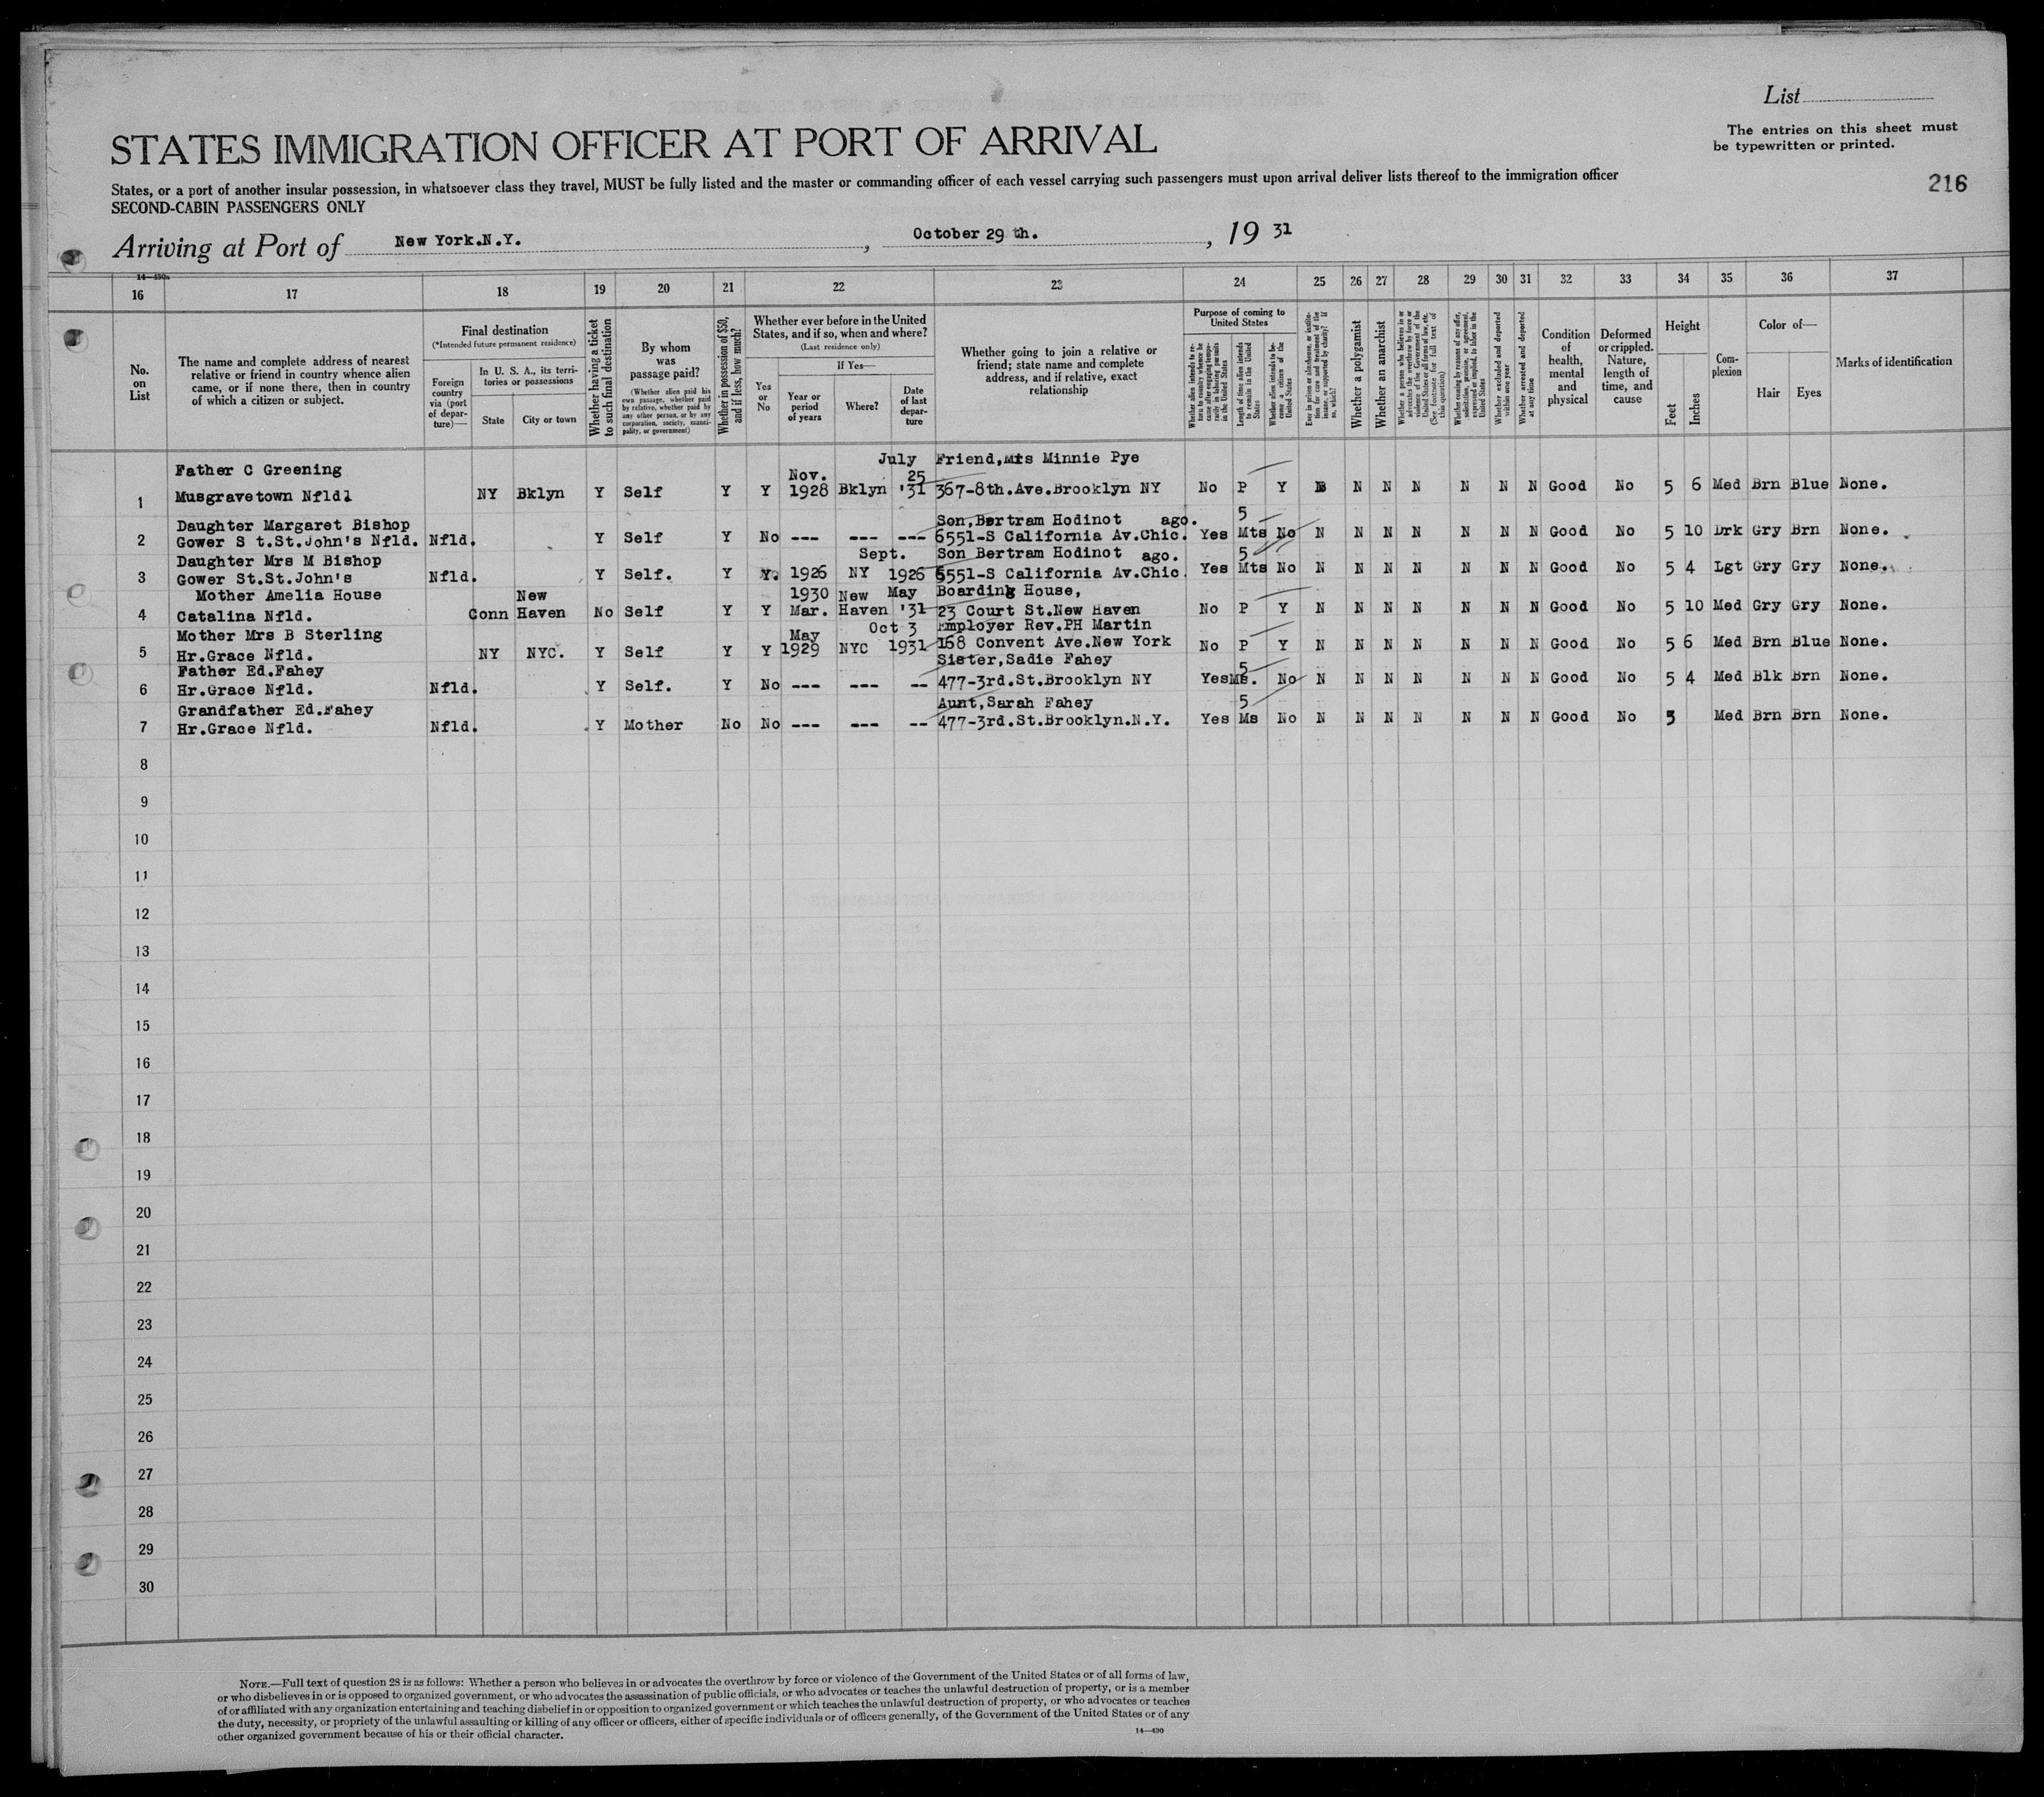 List
The entries on this sheet must
be typewritten or printed.
STATES IMMIGRATION OFFICER AT PORT OF ARRIVAL
States, or a port of another insular possession, in whatsoever class they travel, MUST be fully listed and the master or commanding officer of each vessel carrying such passengers must upon arrival deliver lists thereof to the immigration officer
SECOND-CABIN PASSENGERS ONLY
216
Arriving at Port of New York.N.Y. , October 29 th. , 19 31
14—430a
16 17 18 19 20 21 22 23 24 25 26 27 28 29 30 31 32 33 34 35 36 37
No.
on
List
The name and complete address of nearest
relative or friend in country whence alien
came, or if none there, then in country
of which a citizen or subject.
Final destination
(*Intended future permanent residence)
Foreign
country
via (port
of depar-
ture)—
In U. S. A., its terri-
tories or possessions
State
City or town
Whether having a ticket
to such final destination
By whom
was
passage paid?
(Whether alien paid his
own passage, whether paid
by relative, whether paid by
any other person, or by any
corporation, society, munici-
pality, or government)
Whether in possession of $50,
and if less, how much?
Whether ever before in the United
States, and if so, when and where?
(Last residence only)
Yes
or
No
If Yes—
Year or
period
of years
Where?
Date
of last
depar-
ture
Whether going to join a relative or
friend; state name and complete
address, and if relative, exact
relationship
Purpose of coming to
United States
Whether alien intends to re-
turn to country whence he
came after engaging tempo-
rarily in laboring pursuits
in the United States
Length of time alien intends
to remain in the United
States
Whether alien intends to be-
come a citizen of the
United States
Ever in prison or almshouse, or institu-
tion for care and treatment of the
insane, or supported by charity? If
so, which?
Whether a polygamist
Whether an anarchist
Whether a person who believes in or
advocates the overthrow by force or
violence of the Government of the
United States or all forms of law, etc.
(See footnote for full text of
this question)
Whether coming by reason of any offer,
solicitation, promise, or agreement,
expressed or implied, to labor in the
United States
Whether excluded and deported
within one year
Whether arrested and deported
at any time
Condition
of
health,
mental
and
physical
Deformed
or crippled.
Nature,
length of
time, and
cause
Height
Feet
Inches
Com-
plexion
Color of—
Hair
Eyes
Marks of identification
Father C Greening Nov. July 25 Friend,Mrs Minnie Pye
1 Musgravetown Nfldl NY Bklyn Y Self Y Y 1928 Bklyn '31 367-8th.Ave.Brooklyn NY No P Y N N N N N N Good No 5 6 Med Brn Blue None.
Daughter Margaret Bishop Son,Bertram Hodinot ago. 5
2 Gower S t.St.John's Nfld. Nfld. Y Self Y No --- --- --- 6551-S California Av.Chic. Yes Mts No N N N N N N N Good No 5 10 Drk Gry Brn None.
Daughter Mrs M Bishop Sept. Son Bertram Hodinot ago. 5
3 Gower St.St.John's Nfld. Y Self. Y Y. 1926 NY 1926 6551-S California Av.Chic. Yes Mts No N N N N N N N Good No 5 4 Lgt Gry Gry None.
Mother Amelia House New 1930 New May Boarding House,
4 Catalina Nfld. Conn Haven No Self Y Y Mar. Haven '31 23 Court St.New Haven No P Y N N N N N N N Good No 5 10 Med Gry Gry None.
Mother Mrs B Sterling May Oct 3 Employer Rev.PH Martin
5 Hr.Grace Nfld. NY NYC. Y Self Y Y 1929 NYC 1931 168 Convent Ave.New York No P Y N N N N N N N Good No 5 6 Med Brn Blue None.
Father Ed.Fahey Sister,Sadie Fahey 5
6 Hr.Grace Nfld. Nfld. Y Self. Y No --- --- -- 477-3rd.St.Brooklyn NY Yes Ms. No N N N N N N N Good No 5 4 Med Blk Brn None.
Grandfather Ed.Fahey Aunt,Sarah Fahey 5
7 Hr.Grace Nfld. Nfld. Y Mother No No --- --- -- 477-3rd.St.Brooklyn.N.Y. Yes Ms No N N N N N N N Good No 5 Med Brn Brn None.
8
9
10
11
12
13
14
15
16
17
18
19
20
21
22
23
24
25
26
27
28
29
30
NOTE.—Full text of question 28 is as follows: Whether a person who believes in or advocates the overthrow by force or violence of the Government of the United States or of all forms of law,
or who disbelieves in or is opposed to organized government, or who advocates the assassination of public officials, or who advocates or teaches the unlawful destruction of property, or is a member
of or affiliated with any organization entertaining and teaching disbelief in or opposition to organized government or which teaches the unlawful destruction of property, or who advocates or teaches
the duty, necessity, or propriety of the unlawful assaulting or killing of any officer or officers, either of specific individuals or of officers generally, of the Government of the United States or of any
other organized government because of his or their official character.
14—430